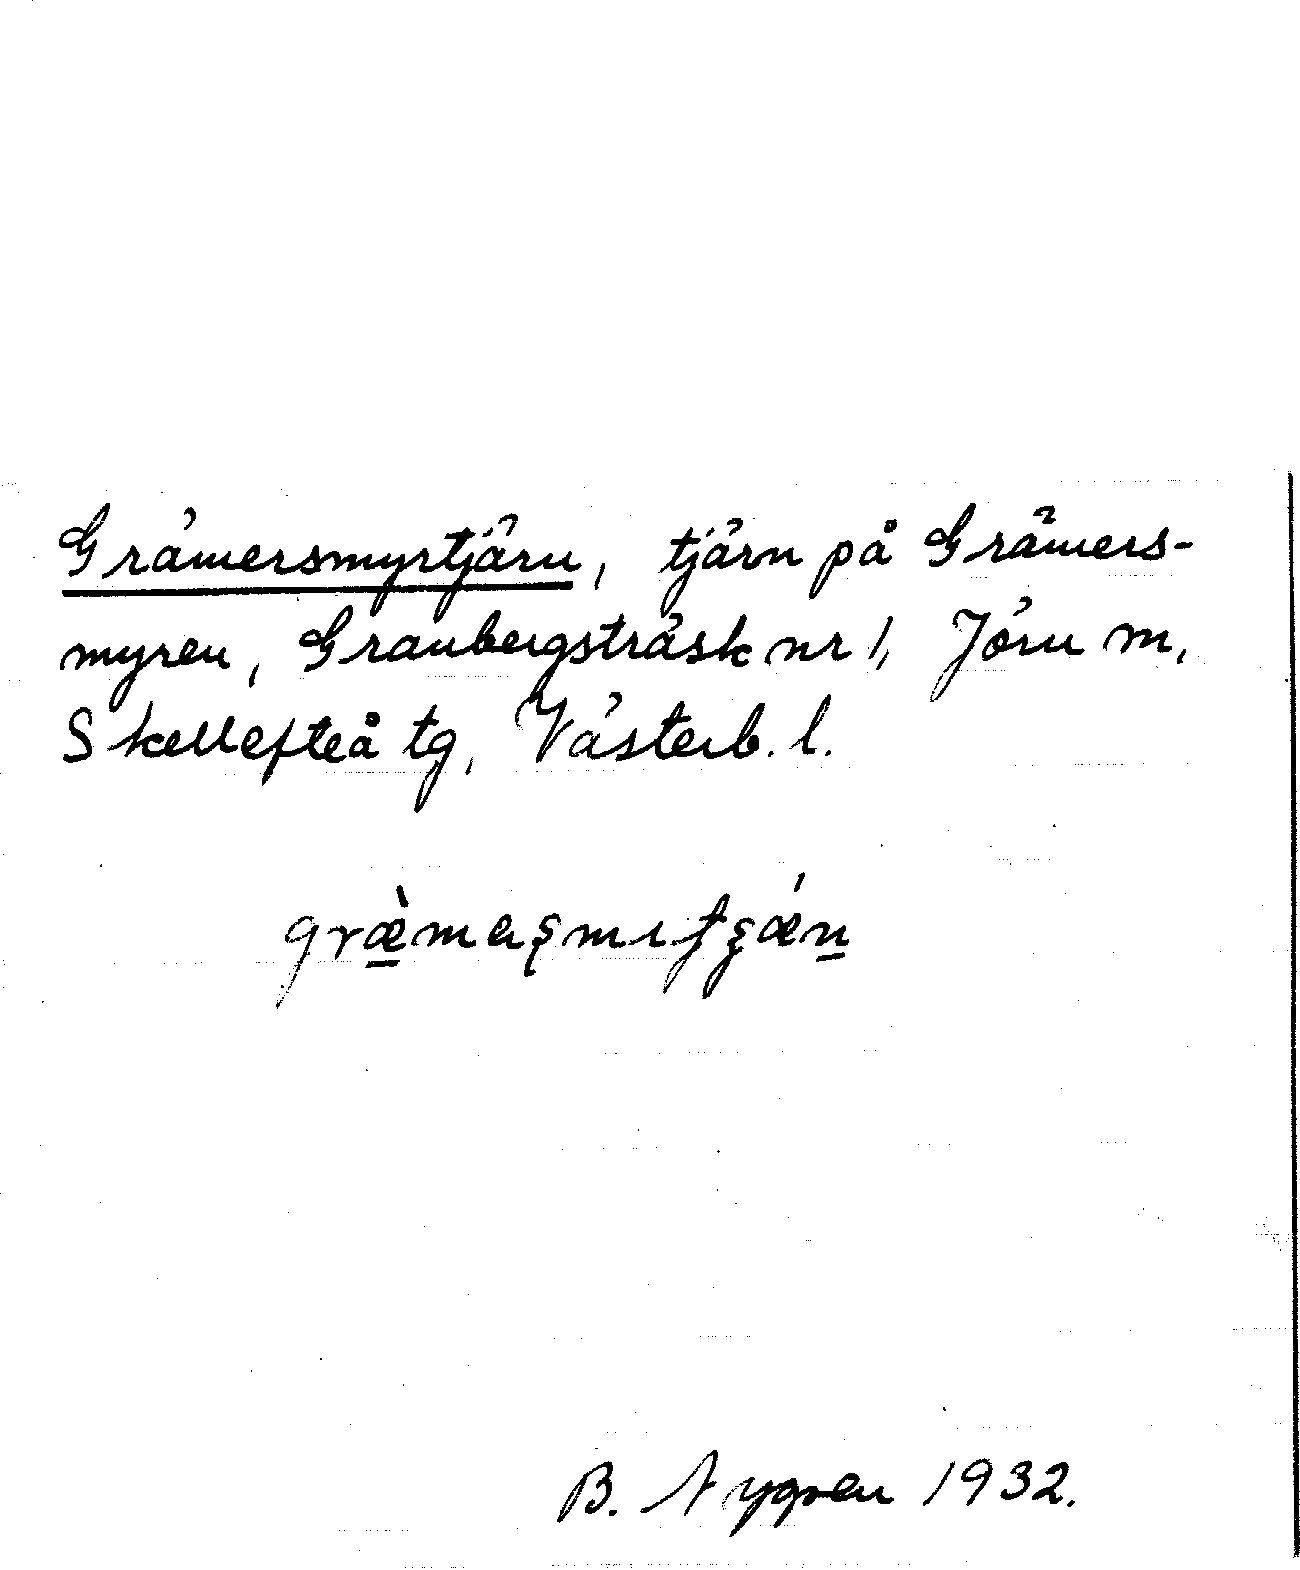 Grämersmyrtjärn, tjärn på Grämers-
myren, Granbergsträsk nr 1, Jörn m,
Skellefteå tg, Västerb. l.
B. Nygren 1932.